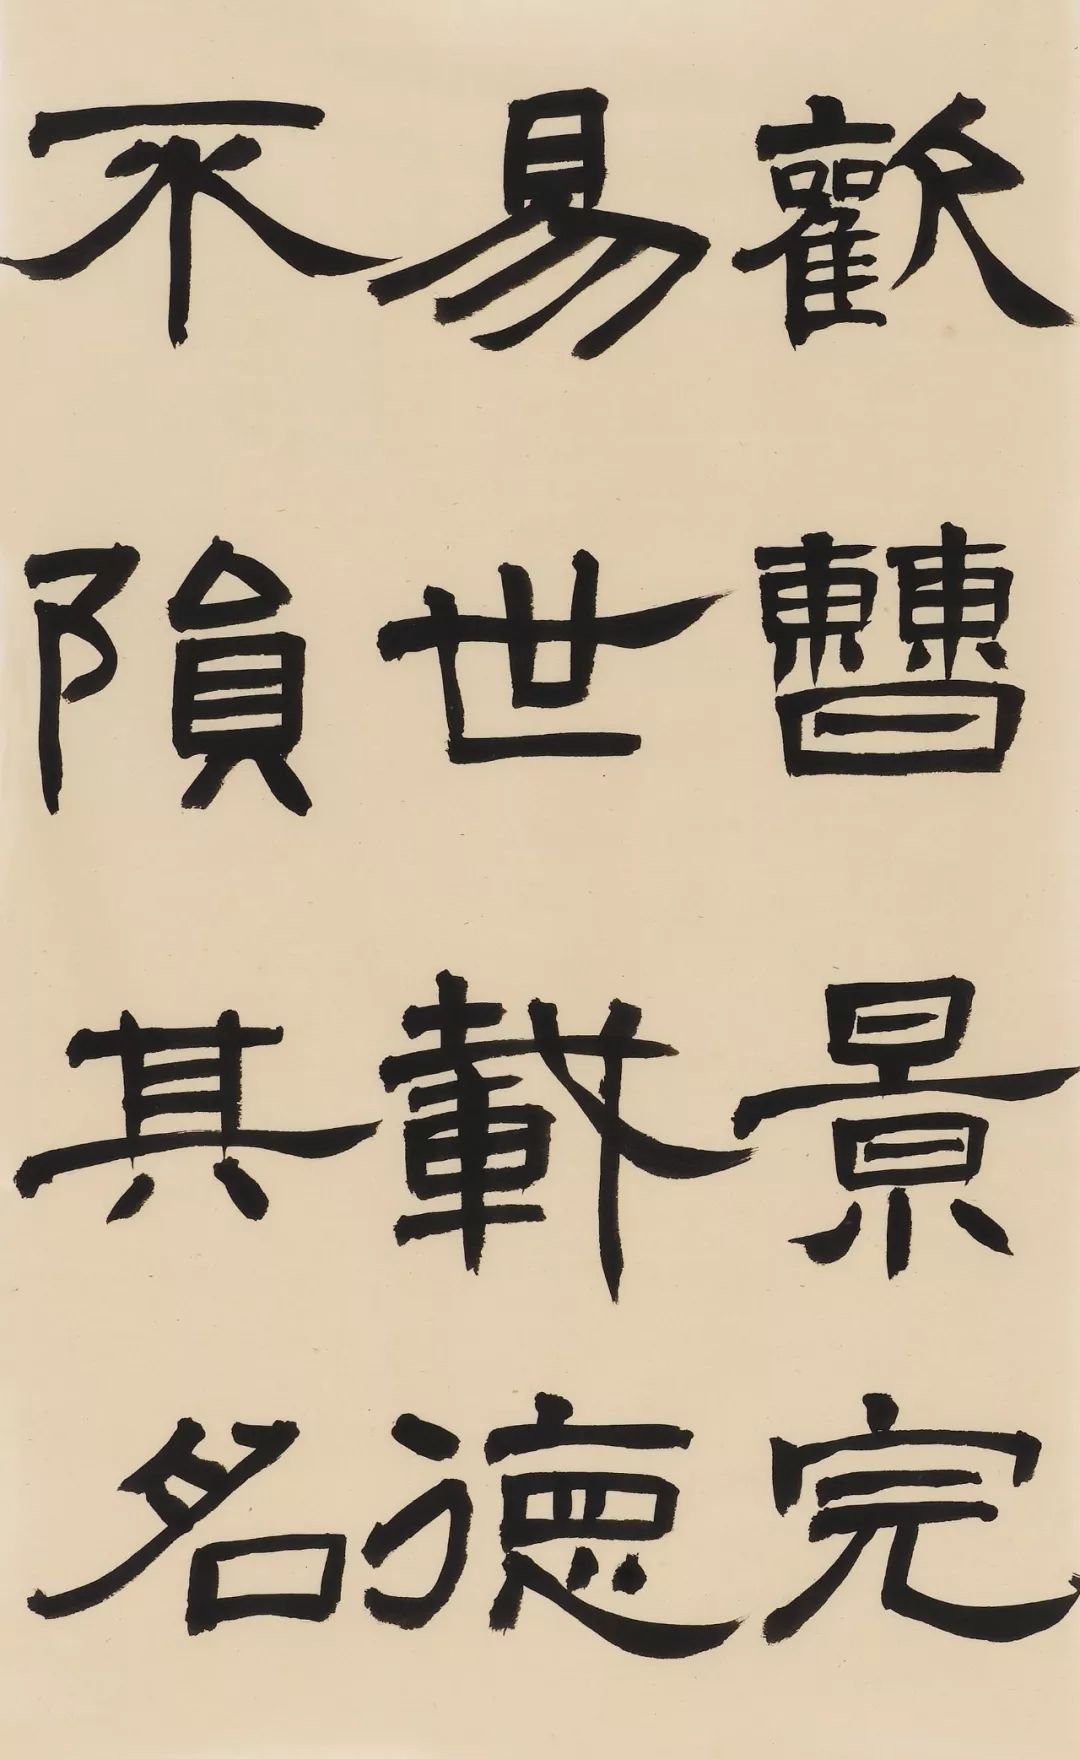 歡曹景完
易世載德
不隕其名